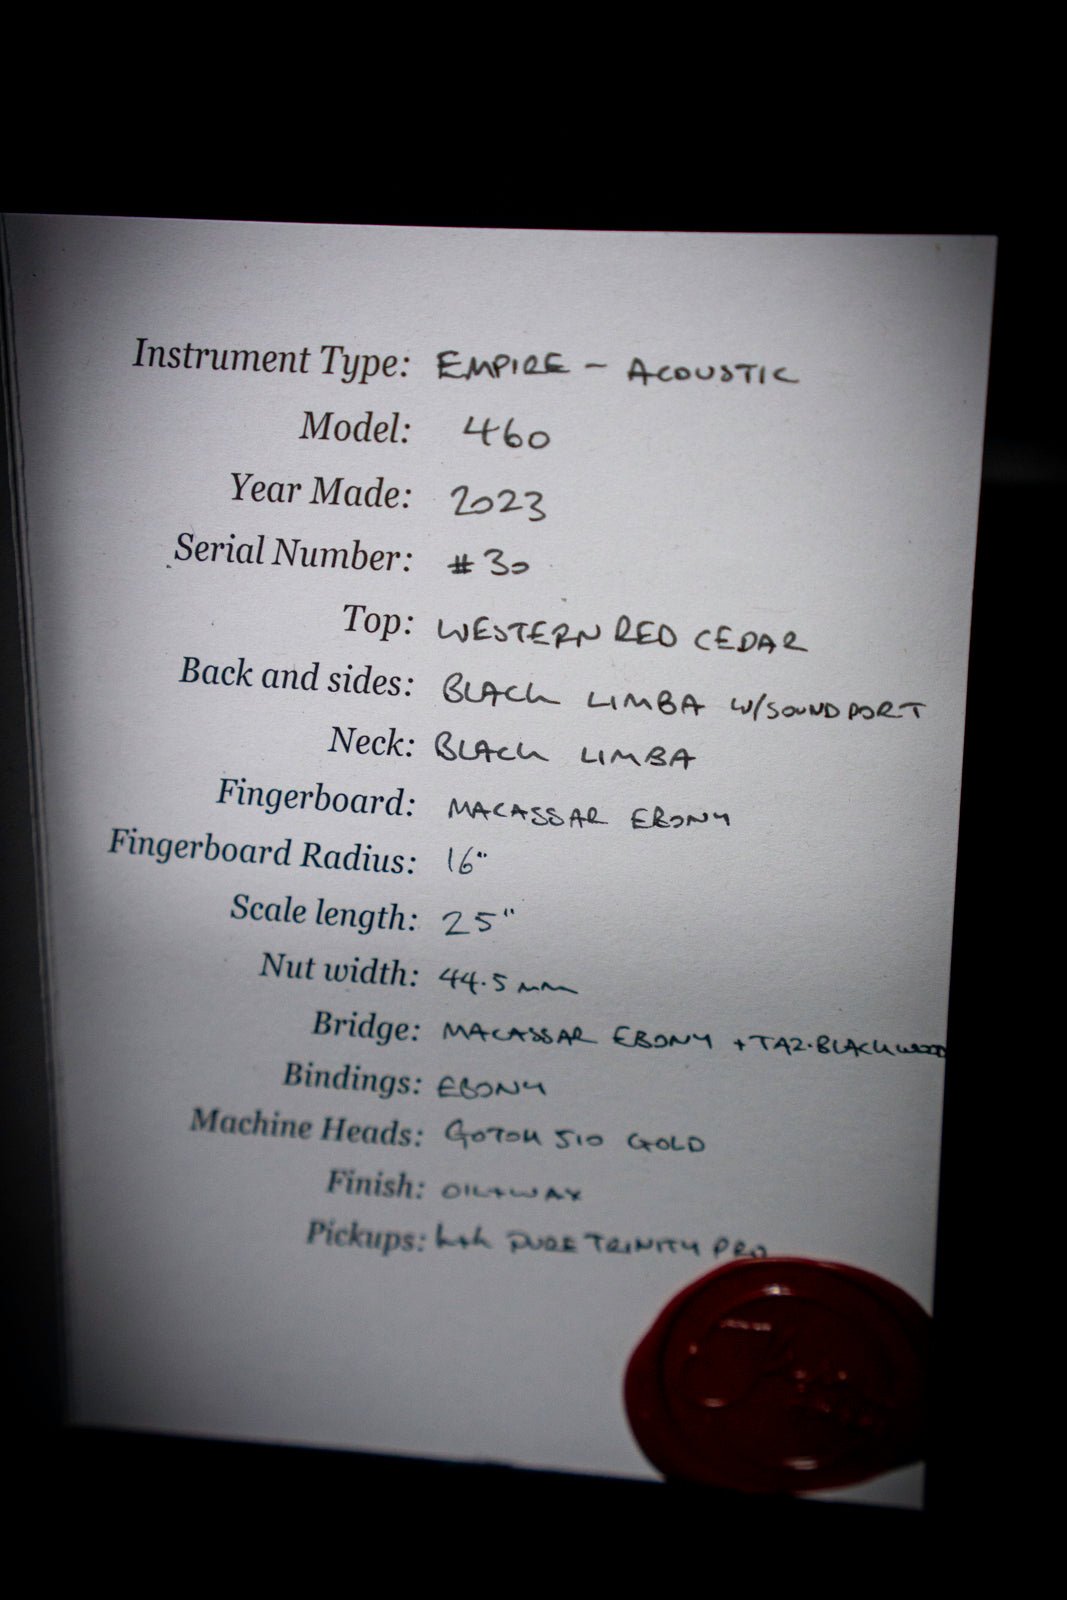 Instrument Type: EMPIRE - ACOUSTIC
Model: 460
Year Made: 2023
Serial Number: #30
Top: WESTERN RED CEDAR
Back and sides: BLACK LIMBA W/SOUNDPORT
Neck: BLACK LIMBA
Fingerboard: MACASSAR EBONY
Fingerboard Radius: 16"
Scale length: 25"
Nut width: 44.5mm
Bridge: MACASSAR EBONY + TAZ.BLACKWOOD
Bindings: EBONY
Machine Heads: GOTOH 510 GOLD
Finish: OIL+WAX
Pickups: K+K PURE TRINITY PRO